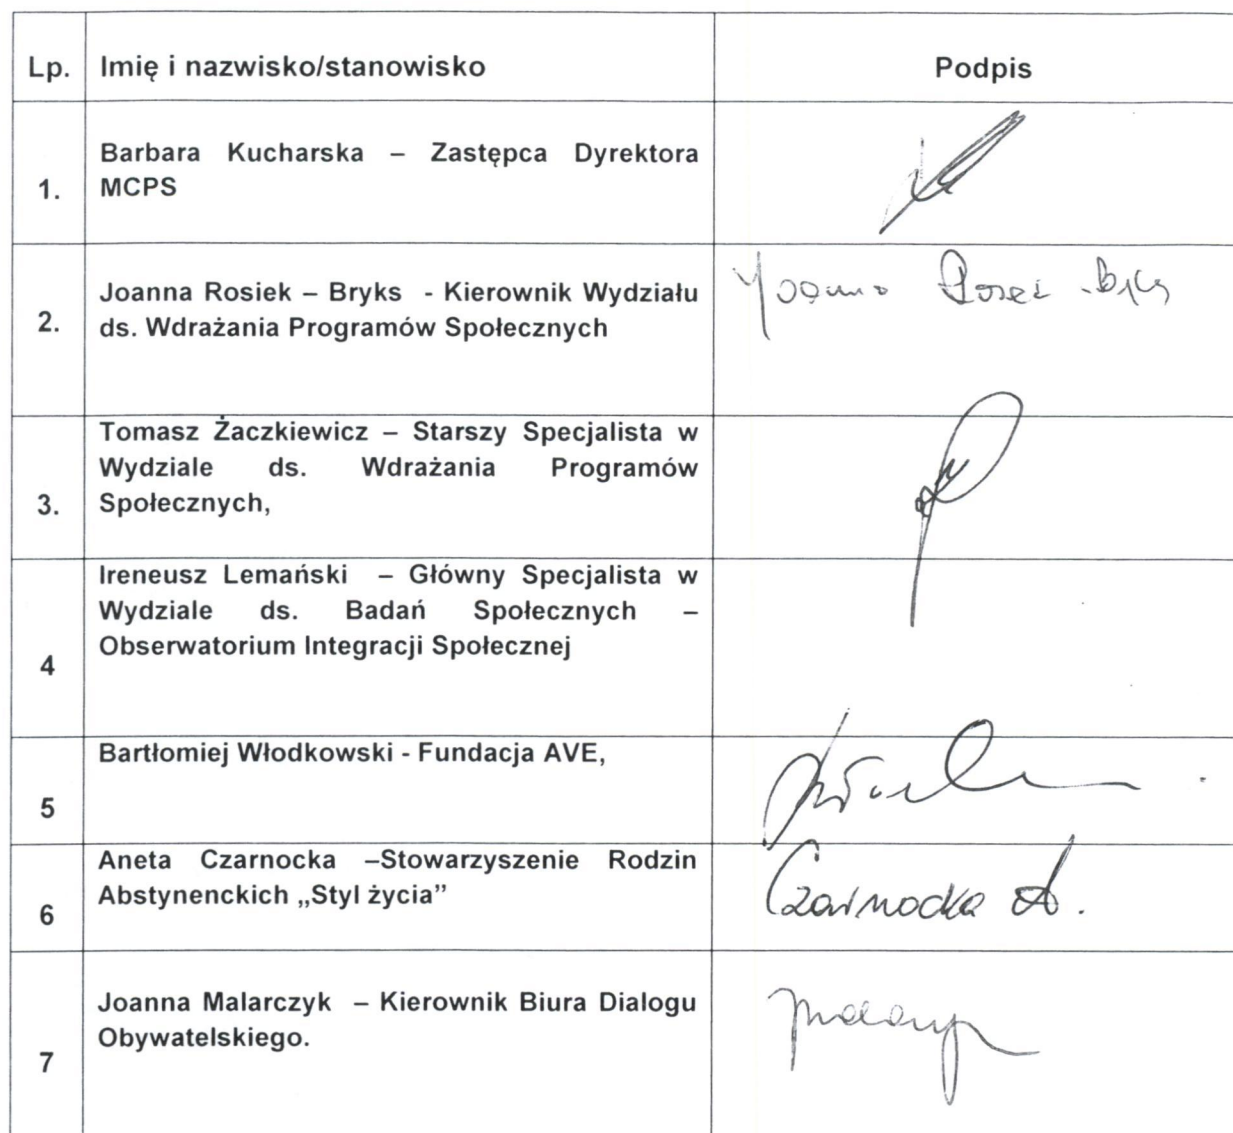 Lp. Imię i nazwisko/stanowisko Podpis
Barbara Kucharska – Zastępca Dyrektora
1. MCPS
Joanna Rosiek – Bryks - Kierownik Wydziału
2. ds. Wdrażania Programów Społecznych
Tomasz Żaczkiewicz – Starszy Specjalista w
Wydziale ds. Wdrażania Programów
3. Społecznych,
Ireneusz Lemański – Główny Specjalista w
Wydziale ds. Badań Społecznych –
Obserwatorium Integracji Społecznej
4
Bartłomiej Włodkowski - Fundacja AVE,
5
Aneta Czarnocka –Stowarzyszenie Rodzin
Abstynenckich „Styl życia”
6 Czarnocka A.
Joanna Malarczyk – Kierownik Biura Dialogu
Obywatelskiego.
7